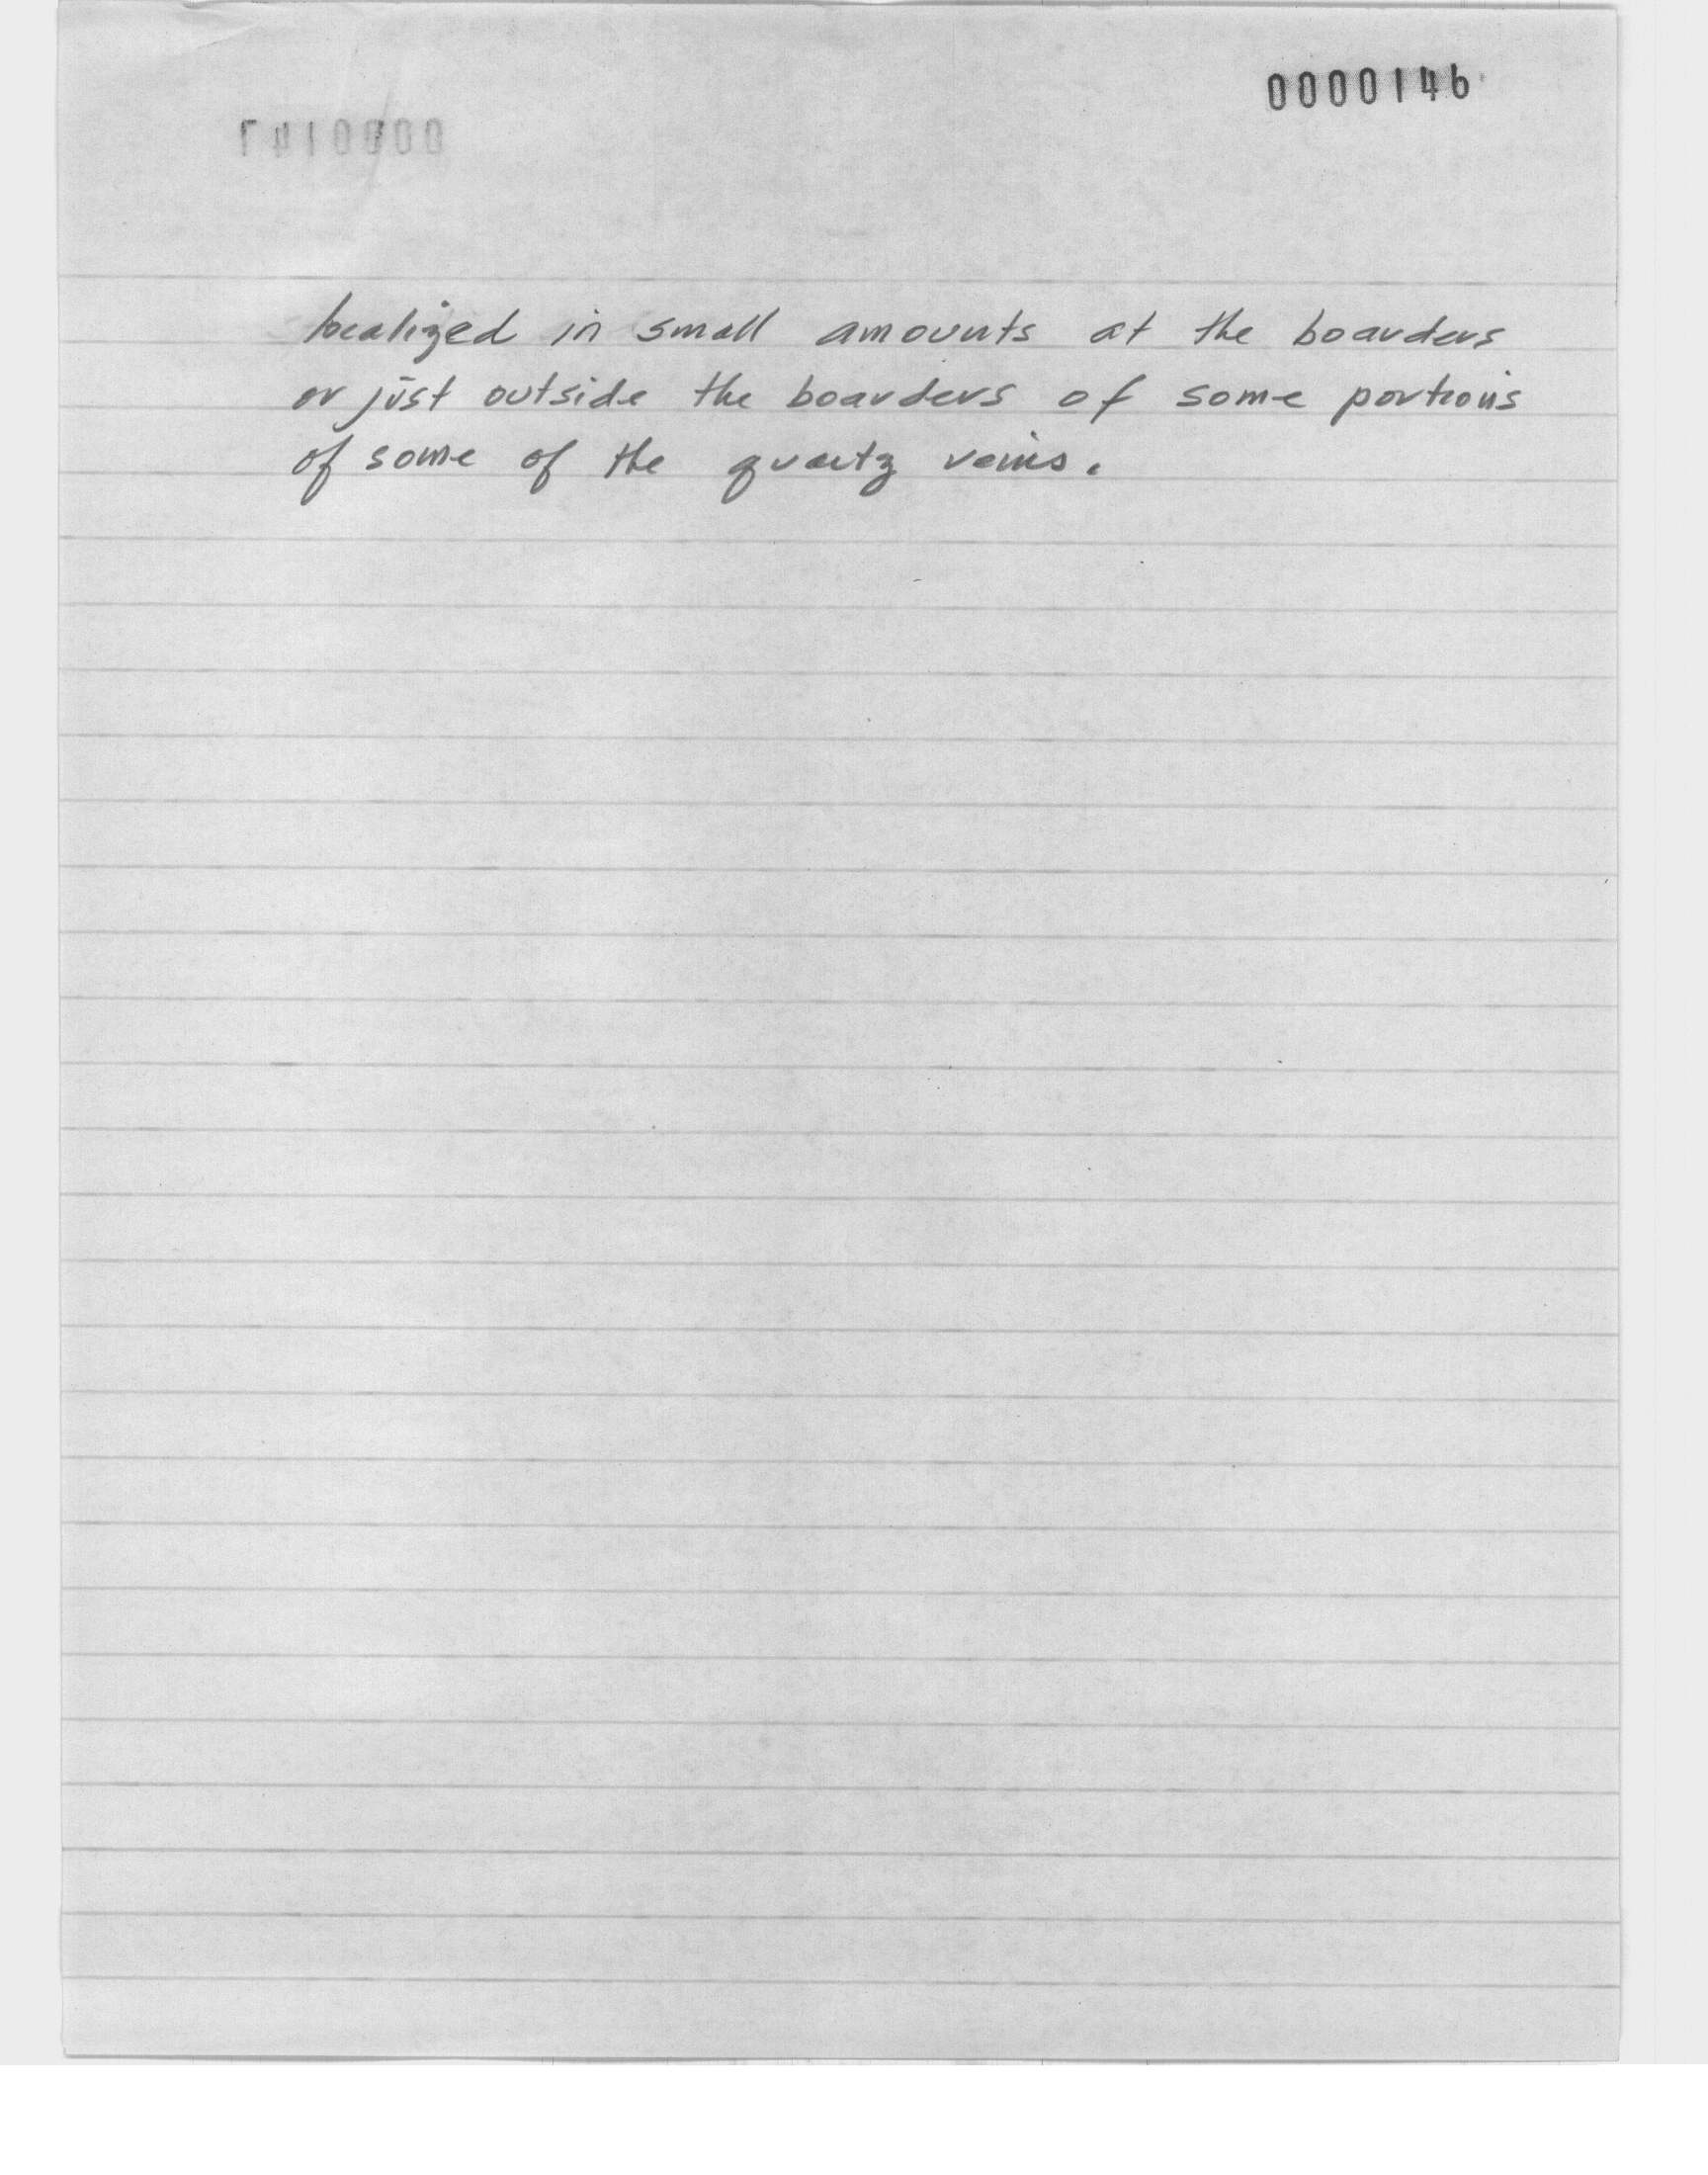 0000146
localized in small amounts at the boarders
or just outside the boarders of some portions
of some of the quartz veins.